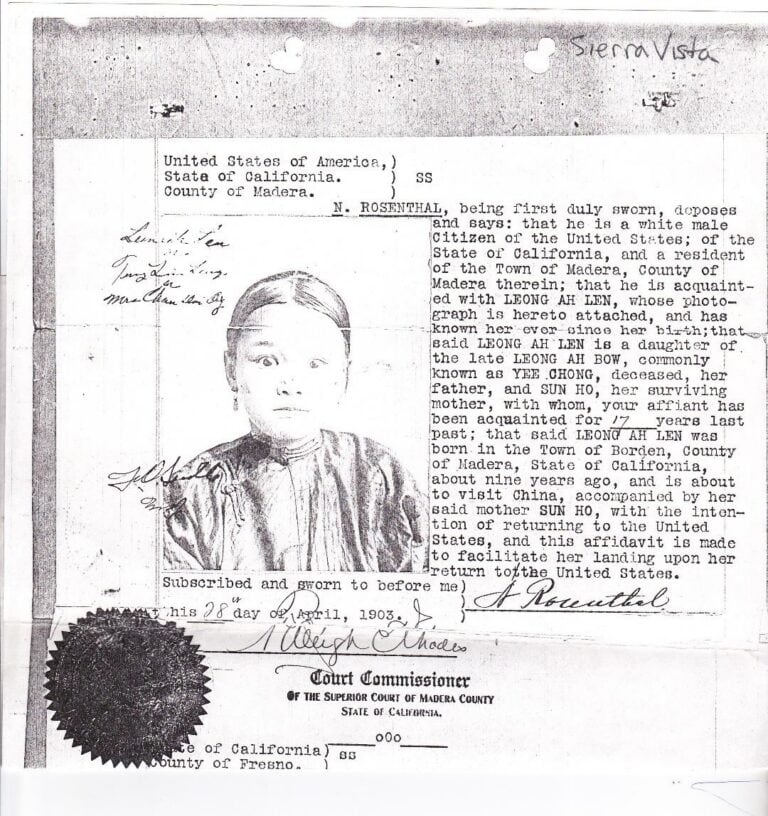 Sierra Vista
United States of America,)
State of California. ) SS
County of Madera. )
N. ROSENTHAL, being first duly sworn, deposes
and says: that he is a white male
Citizen of the United States; of the
State of California, and a resident
of the Town of Madera, County of
Madera therein; that he is acquaint-
ed with LEONG AH LEN, whose photo-
graph is hereto attached, and has
known her ever since her birth; that
said LEONG AH LEN is a daughter of
the late LEONG AH BOW, commonly
known as YEE CHONG, deceased, her
father, and SUN HO, her surviving
mother, with whom, your affiant has
been acquainted for 17 years last
past; that said LEONG AH LEN was
born in the Town of Borden, County
of Madera, State of California,
about nine years ago, and is about
to visit China, accompanied by her
said mother SUN HO, with the inten-
tion of returning to the United
States, and this affidavit is made
to facilitate her landing upon her
return to the United States.
Subscribed and sworn to before me)
his 28th day of April, 1903.
N Rosenthal
Rhodes
Court Commissioner
OF THE SUPERIOR COURT OF MADERA COUNTY
STATE OF CALIFORNIA.
ooo
te of California) SS
ounty of Fresno. )